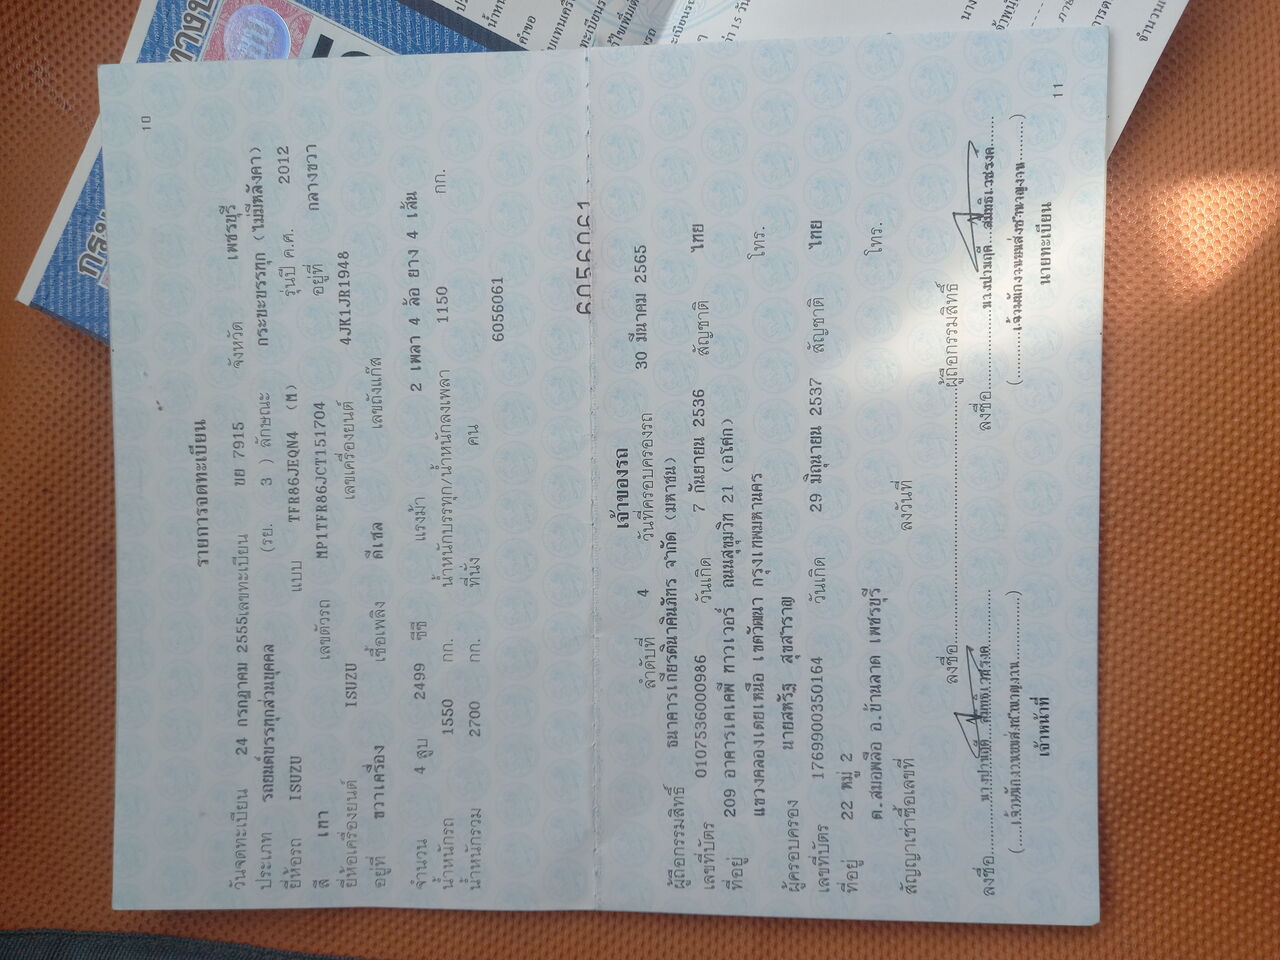 10
รายการจดทะเบียน
วันจดทะเบียน 24 กรกฎาคม 2555 เลขทะเบียน ขย 7915 จังหวัด เพชรบุรี
ประเภท รถยนต์บรรทุกส่วนบุคคล (รย. 3 ) ลักษณะ กระบะบรรทุก (ไม่มีหลังคา)
ยี่ห้อรถ ISUZU แบบ TFR86JEQN4 (M) รุ่นปี ค.ศ. 2012
สี เทา เลขตัวรถ MP1TFR86JCT151704 อยู่ที่ กลางขวา
ยี่ห้อเครื่องยนต์ ISUZU เลขเครื่องยนต์ 4JK1JR1948
อยู่ที่ ขวาเครื่อง เชื้อเพลิง ดีเซล เลขถังแก๊ส
จำนวน 4 สูบ 2499 ซีซี แรงม้า 2 เพลา 4 ล้อ ยาง 4 เส้น
น้ำหนักรถ 1550 กก. น้ำหนักบรรทุก/น้ำหนักลงเพลา 1150 กก.
น้ำหนักรวม 2700 กก. ที่นั่ง คน
6056061
6056061
เจ้าของรถ
ลำดับที่ 4 วันที่ครอบครองรถ 30 มีนาคม 2565
ผู้ถือกรรมสิทธิ์ ธนาคารเกียรตินาคินภัทร จำกัด (มหาชน)
เลขที่บัตร 0107536000986 วันเกิด 7 กันยายน 2536 สัญชาติ ไทย
ที่อยู่ 209 อาคารเคเคพี ทาวเวอร์ ถนนสุขุมวิท 21 (อโศก)
แขวงคลองเตยเหนือ เขตวัฒนา กรุงเทพมหานคร โทร.
ผู้ครอบครอง นายสหรัฐ สุขสำราญ
เลขที่บัตร 1769900350164 วันเกิด 29 มิถุนายน 2537 สัญชาติ ไทย
ที่อยู่ 22 หมู่ 2
ต.สมอพลือ อ.บ้านลาด เพชรบุรี โทร.
สัญญาเช่าซื้อเลขที่ ลงวันที่
ลงชื่อ ผู้ถือกรรมสิทธิ์
ลงชื่อ ลงชื่อ
(เจ้าพนักงานขนส่งชำนาญงาน) (เจ้าพนักงานขนส่งชำนาญงาน)
เจ้าหน้าที่ นายทะเบียน
11